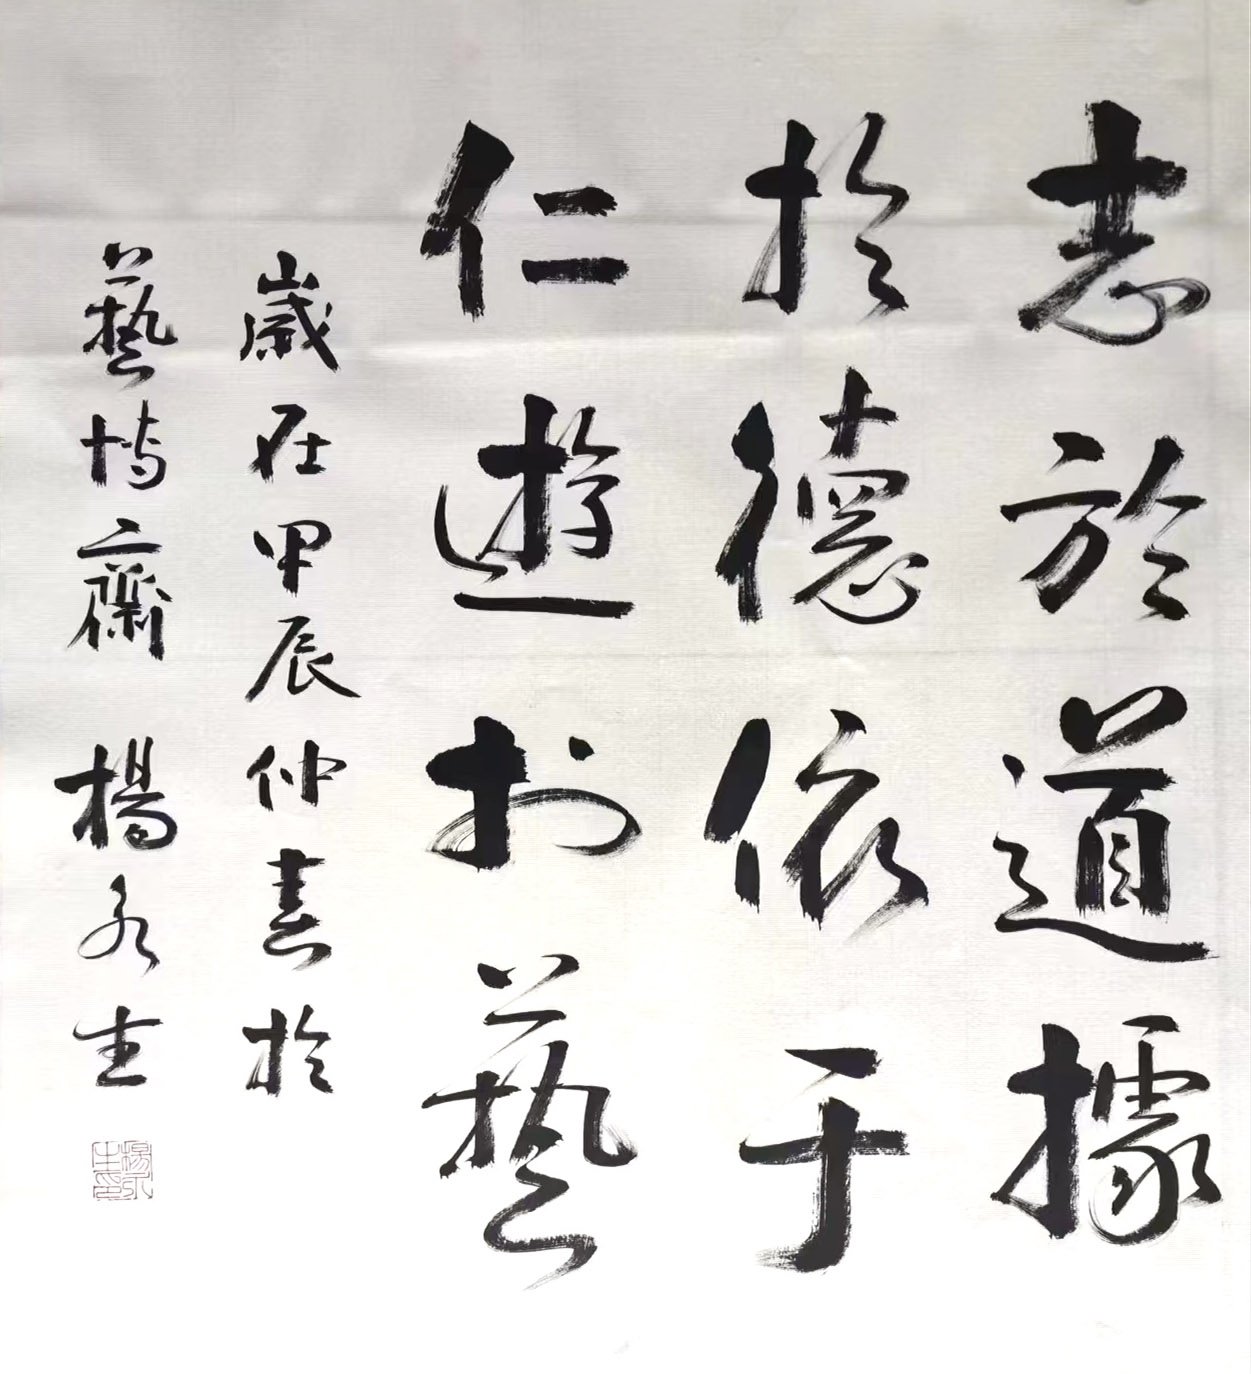 志於道據
於德依于
仁遊於藝
歲在甲辰仲春於
藝博齋楊永生
楊永生印